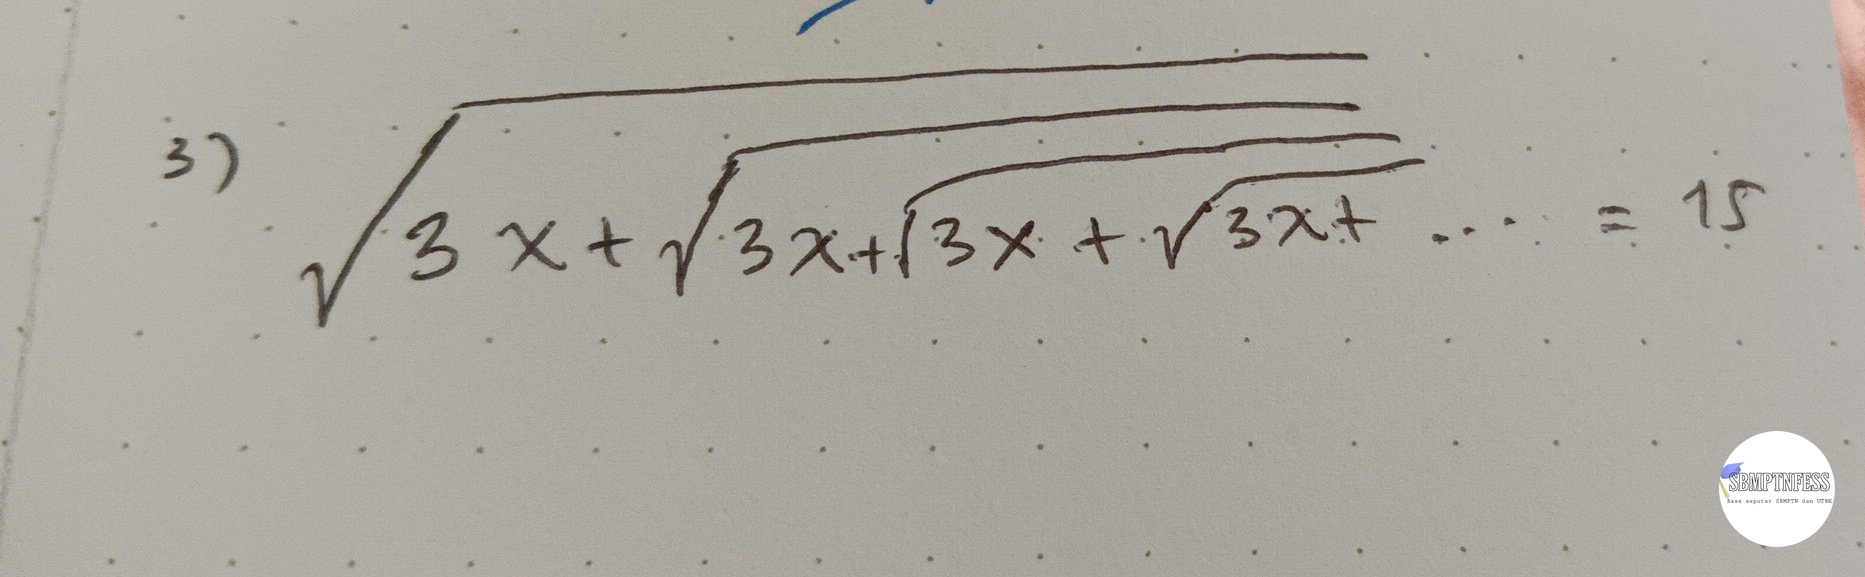 3) √3x + √3x + √3x + √3x + .... = 15
SBMPTNFESS
Base seputar SBMPTN dan UTBK